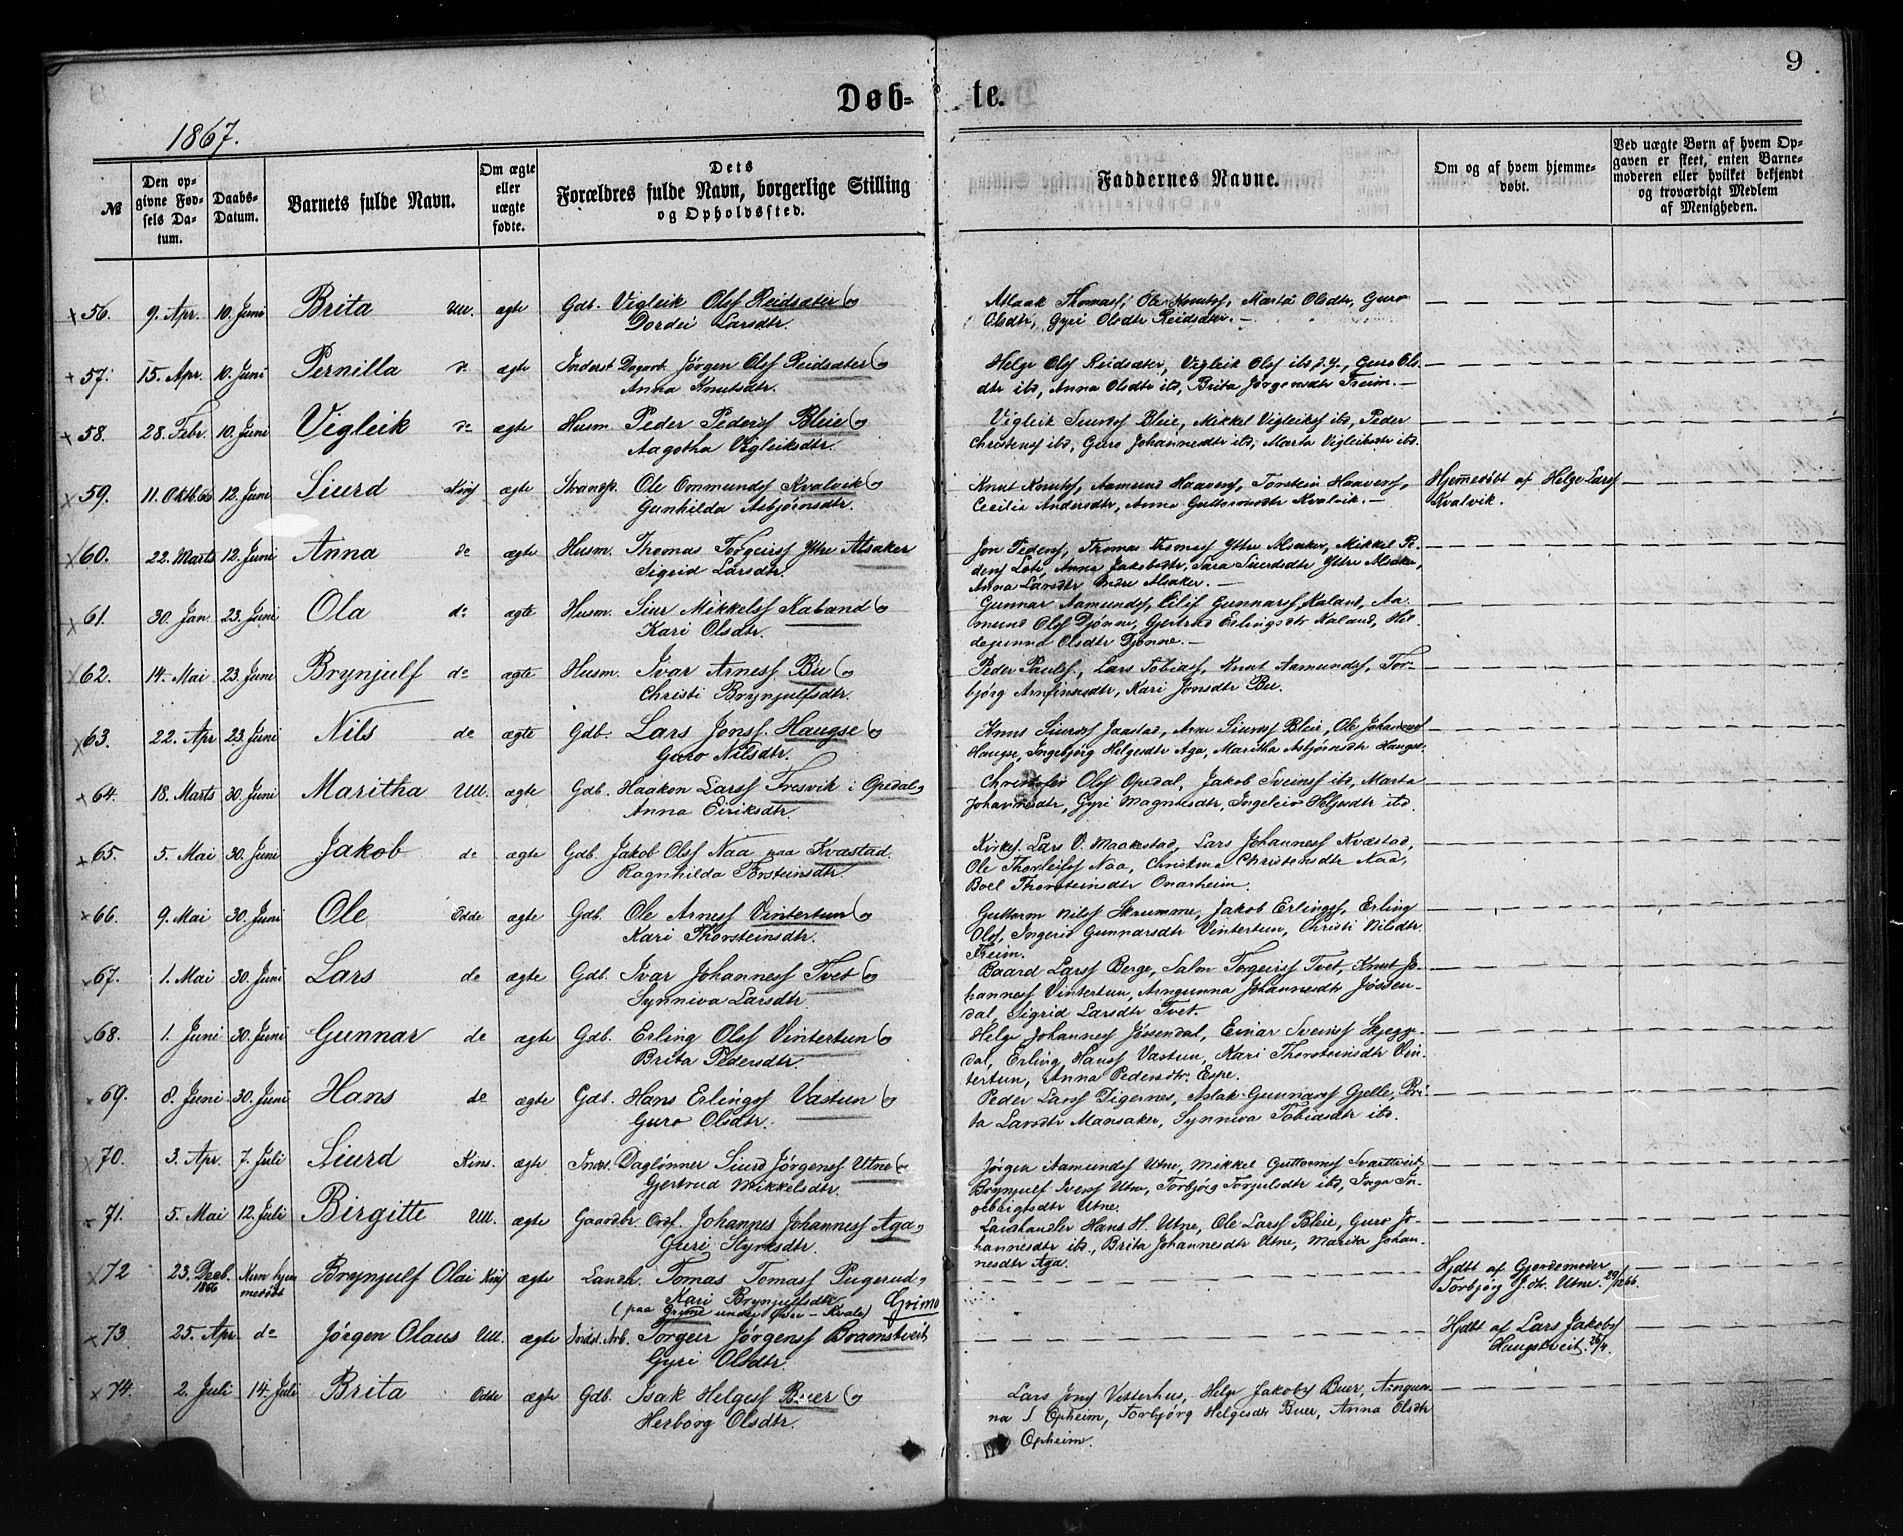 9
Døb- te.
1867.
№ | Den op- givne Fød- sels Da- tum. | Daabs- Datum. | Barnets fulde Navn. | Om ægte eller uægte fødte. | Dets Forældres fulde Navn, borgerlige Stilling og Opholdssted. | Faddernes Navne. | Om og af hvem hjemme- døbt. | Ved uægte Børn af hvem Op- gaven er skeet, enten Barne- moderen eller hvilket bekjendt og troværdigt Medlem af Menigheden.
56. 9. Apr. 10. Juni Brita Ull. ægte Gdb. Vigleik Olsf Reidsæter
Dordei Larsdtr.
Aslaak Thomasf, Ole Knutsf, Marta Olsdtr, Guro
Olsdtr, Gyri Olsdtr Reidsæter. —
57. 15. Apr. 10. Juni Pernilla do ægte Inderst Dagarb. Jørgen Olsf Reidsæter
Anna Knutsdtr.
Helge Olsf Reidsæter, Vigleik Olsf ibd. d. y., Guro Ols-
dtr ibd, Anna Olsdtr ibd, Brita Jørgensdtr Freim. —
58. 28. Febr. 10. Juni Vigleik do ægte Husm. Peder Pedersf Bleie
Aagotha Vigleiksdtr.
Vigleik Siursf Bleie, Mikkel Vigleiksf ibd, Peder
Christensf ibd, Guro Johannesdtr ibd, Marta Vigleiksdtr ibd.
59. 11. Oktb 66 12. Juni Siurd Kinj ægte Strandp. Ole Ommundsf Kvalvik
Gunhilda Asbjørnsdtr.
Knut Knutsf, Aamund Haaversf, Torstein Haaversf,
Cecilia Andersdtr, Anna Guttormsdtr Kvalvik. —
Hjemmedøbt af Helge Larsf
Kvalvik.
60. 22. Marts 12. Juni Anna do ægte Husm. Thomas Torgeirsf Ytre Alsaker
Sigrid Larsdtr.
Jon Pedersf, Thomas Thomasf Ytre Alsaker, Mikkel Pe-
dersf Lote, Anna Jakobsdtr, Sara Siursdtr Ytre Alsaker,
Anna Larsdtr Indre Alsaker. —
61. 30. Jan. 23. Juni Ola do ægte Husm. Siur Mikkelsf Kaland
Kari Olsdtr.
Gunnar Aamundsf, Eilif Gunnarsf Kaland, Aa-
mund Olsf Djønne, Gjertrud Erlingsdtr Kaland, Hil-
degunna Olsdtr Djønne. —
62. 14. Mai 23. Juni Brynjulf do ægte Husm. Ivar Arnesf Bu
Christi Brynjulfsdtr.
Peder Paulsf, Lars Tobiasf, Knut Aamundsf, Tor-
bjørg Arnfinnsdtr, Kari Jonsdtr Bu.
63. 22. Apr 23. Juni Nils do ægte Gdb. Lars Jonsf Haugse
Guro Nilsdtr.
Knut Siursf Jaastad, Arne Siursf Bleie, Ole Johannesf
Haugse, Ingebjørg Helgesdtr Aga, Maritha Asbjørnsdtr Haugse.
64. 18. Marts 30. Juni Maritha Ull. ægte Gdb. Haakon Larsf Tresvik i Opedal
Anna Eiriksdtr.
Christofer Olsf Opedal, Jakob Sveinsf ibd, Marta
Johannesdtr, Gyri Magnusdtr, Ingeleiv Helgesdtr ibd.
65. 5. Mai 30. Juni Jakob do ægte Gdb. Jakob Olsf Naa paa Kvæstad.
Ragnhilda Torsteinsdtr.
Kirkes. Lars O. Maakestad, Lars Johannesf Kvæstad,
Ole Thorleifsf Naa, Christina Christensdtr Aad,
Boel Thorsteinsdtr Onarheim.
66. 9. Mai 30. Juni Ole Odde ægte Gdb. Ole Arnesf Vintertun
Kari Thorsteinsdtr.
Guttorm Nilsf Skrumme, Jakob Erlingsf, Erling
Olsf, Ingerid Gunnarsdtr Vintertun, Christi Nilsdtr
Freim.
67. 1. Mai 30. Juni Lars do ægte Gdb. Ivar Johannesf Tvet
Synniva Larsdtr
Baard Larsf Berge, Salm Torgeirsf Tvet, Knut Jo-
hannesf Vintertun, Arngunna Johannesdtr Jøsen-
dal, Sigrid Larsdtr Tvet.
68. 1. Juni 30. Juni Gunnar do ægte Gdb. Erling Olsf Vintertun
Brita Pedersdtr.
Helge Johannesf Jøsendal, Einar Sveinsf Skjegge-
dal, Erling Hansf Vastun, Kari Thorsteinsdtr Vin-
tertun, Anna Pedersdtr. Espe.
69. 8. Juni 30. Juni Hans do ægte Gdb. Hans Erlingsf Vastun
Guro Olsdtr.
Peder Larsf Digernes, Aslak Gunnarsf Gjelle, Bri-
ta Larsdtr Mansaker, Synniva Tobiasdtr ibd.
70. 3. Apr. 7. Juli Siurd Kins. ægte Inds. Daglønner Siurd Jørgensf Utne
Gjertrud Mikkelsdtr.
Jørgen Aamundsf Utne, Mikkel Guttormsf Svartveit,
Brynjulf Iversf Utne, Torbjørg Torjulsdtr ibd, Inga In-
gebrigtsdtr Utne.
71. 5. Mai 12. Juli Birgitte Ull. ægte Gaardbr. Ordf. Johannes Johannesf Aga
Guri Styrksdtr.
Landhandler Hans H. Utne, Ole Larsf Bleie, Guro Jo-
hannesdtr ibd., Brita Johannesdtr Utne, Marita Johan-
nesdtr Aga.
72 23. Decb. 1866 Kun hjem medøbt Brynjulf Olai Kinj ægte Landh. Tomas Tomasf Pugerud
Kari Brynjulfsdtr
(paa Grimo under Øvre-Kvale) Grimo
Hjdbt af Gjordemoder
Torbjøg J.dtr. Utne. 29/12 66.
73 25. Apr. do Jørgen Olaus Ull. ægte Indst. Arb. Torgeir Jørgensf Braanstveit
Gyri Olsdtr.
Hjdbt af Lars Jakobsf
Haugstveit 26/4.
74. 2. Juli 14. Juli Brita Odde ægte Gdb. Isak Helgesf Buer
Herborg Olsdtr.
Lars Jonsf Vesterhus, Helge Jakobsf Buer, Arngun-
na I. Opheim, Torbjørg Helgesdtr Buer, Anna Olsdtr
Opheim.